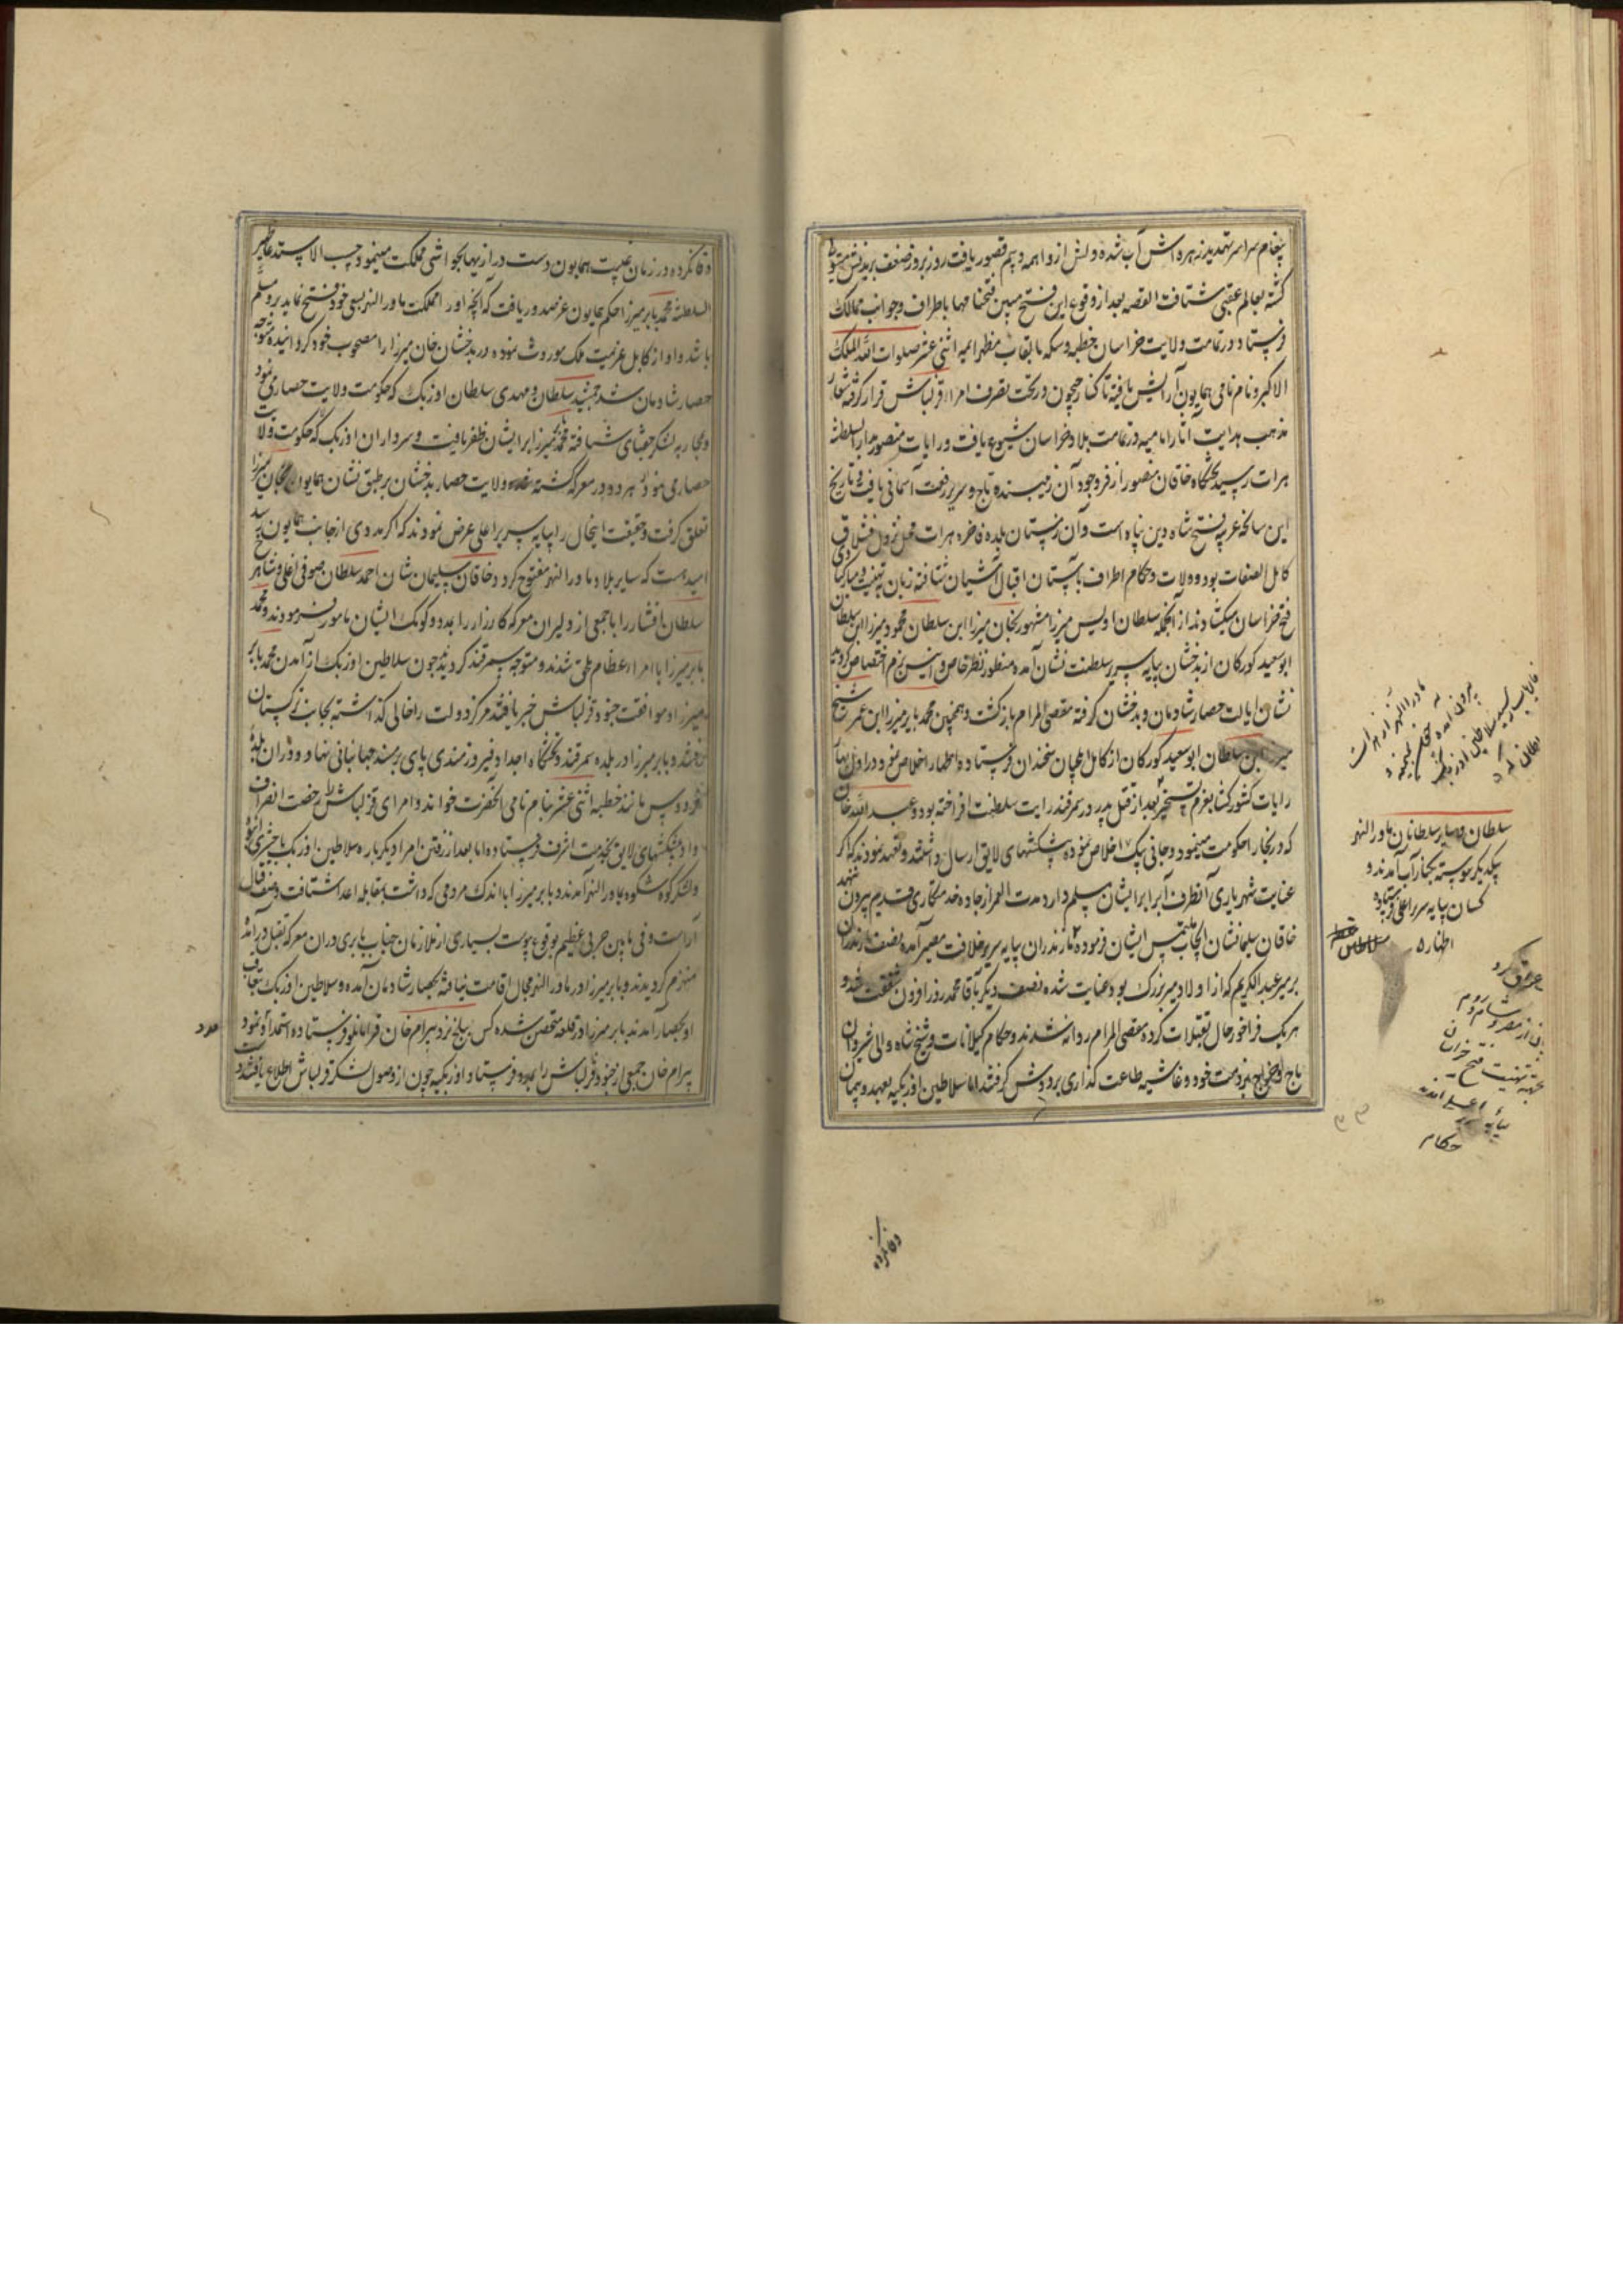 پیغام سراسر تهدید زهره اش آب شده دلش از واهمه و بیم قصور یافت روز بروز ضعف بر بدنش مستولی
کشته بعالم عقبی شتافت القصه بعد از وقوع این فتح مبین فتحنامها باطراف و جوانب ممالک
فرستاد و در تمامت ولایت خراسان خطبه و سکه بالقاب مظهر ایمه اثنی عشر صلوات الله الملک
الاکبر و نام نامی همایون آرایش یافته تا کنار جیحون در تحت تصرف امراء قزلباش قرار گرفته شعار
مذهب هدایت آثار امامیه در تمامت بلاد خراسان شیوع یافت و رایات منصور بدار السلطنه
هرات رسید تختگاه خاقان منصور از فر وجود آن زیبنده تاج و سریر رفعت آسمانی یافت تاریخ
این سانحه غریبه فتح شاه دین پناه است و آن زمستان بلده فاخره هرات محل نزول قشلاق
کامل الصفات بود و ولات و حکام اطراف بآستان اقبال آشیان شتافته زبان تهنیت و مبارکبادی
فتح خراسان میکشادند از آنجمله سلطان اویس میرزا مشهور بخان میرزا ابن سلطان محمود میرزا ابن سلطان
ابو سعید کورکان از بدخشان بپایه سریر سلطنت نشان آمده منظور نظر خاص و انیس بزم اختصاص گردید
نشان ایالت حصار شادمان و بدخشان گرفته مقضی المرام بازگشت و همچنین محمد بابر میرزا ابن عمر شیخ
میرزا ابن سلطان ابو سعید کورکان از کابل ایلچیان سخندان فرستاده اظهار اخلاص نمود و در اول بهار
رایات کشور کشا بعزم تسخیر بعد از قتل پدر در سمرقند رایت سلطنت افراخته بود و عبد الله خان
که در بخارا حکومت مینمود و جانی بیک اخلاص نموده پیشکشهای لایق ارسال داشتند و تعهد نمودند که اگر
عنایت شهریاری آنطرف آب را بر ایشان مسلم دارد مدت العمر از جاده خدمتکاری قدم بیرون ننهند
خاقان سلیمانشان انجاح ملتمس ایشان فرموده مازندران بپایه سریر خلافت مصیر آمده نصف مازندران
بر میر عبد الکریم که از اولاد میر بزرک بود عنایت شده نصف دیگر بآقا محمد روز افزون شفقت شد و
هر یک فراخور حال تقبلات کرده مقضی المرام روانه شدند و حکام کیلانات و شیخ شاه والی شیروان
باج و خراج بر ذمت خود و غاشیه طاعت گذاری بر دوش گرفتند اما سلاطین اوزبکیه بعهد و پیمان
ماوراالنهر از هرات
بیرون آمده
سلطان و سایر سلطانان ماورالنهر
یکدیگر پیوسته بکنار آب آمدند و
کسان بپایه سریر اعلی فرستاده
اظهار
مصر و شام و روم
بجهة تهنیت فتح خراسان
بپایه سریر اعلی آمدند
حکام
وفا نکرده
وفا نکرده در زمان غیبت همایون دست درازیها بحواشی مملکت مینمود حسب الاستدعا ظهیر
السلطنه محمد بابر میرزا حکم همایون عز صدور یافت که آنچه او از مملکت ماورا النهر بسعی خود فتح نماید برو مسلم
باشد و او از کابل عزیمت ملک موروث نموده در بدخشان خان میرزا را مصحوب خود گردانیده متوجه
حصار شادمان شد جمشید سلطان و مهدی سلطان اوزبک که حکومت ولایت حصار می نمود
و بمحاربه لشکر جغتای شتافته محمد بابر میرزا بر ایشان ظفر یافت و سرداران اوزبک که حکومت ولایت
حصار می نمودند هر دو در معرکه کشته شده ولایت حصار بدخشان بر طبق نشان همایون بخان میرزا
تعلق گرفت و حقیقت اینحال را بپایه سریر اعلی عرض نمودند که اگر مددی از جانب همایون رسد
امید است که سایر بلاد ماورا النهر مفتوح کردد خاقان سلیمان شان احمد سلطان صوفی اغلی و شاهرخ
سلطان افشار را با جمعی از دلیران معرکه کارزار را بمدد و کومک ایشان مامور فرمودند و محمد
بابر میرزا با امراء عظام ملحق شدند و متوجه سمرقند گردیدند چون سلاطین اوزبک از آمدن محمد بابر
میرزا و موافقت جنود قزلباش خبر یافتند مرکز دولت را خالی گذاشته بجانب ترکستان
رفتند و بابر میرزا در بلده سمرقند تختگاه اجداد فیروزمندی پای بر مسند جهانبانی نهاد و در آن بلده
فردوس مانند خطبه اثنی عشر بنام نامی آنحضرت خواند و امرای قزلباش را رخصت انصراف
داد پیشکشهای لایق بخدمت اشرف فرستاده اما بعد از رفتن امرا دیگر باره سلاطین اوزبک با حشری انبوه
و لشکر کوه شکوه بماورا النهر آمدند و بابر میرزا با اندک مردمی که داشت بمقابله اعدا شتافت و صف قتال
آراست و فی مابین حربی عظیم بوقوع پیوست بسیاری از ملازمان جناب بابری در آن معرکه بقتل در آمده
منهزم گردیدند و بابر میرزا در ماورا النهر مجال اقامت نیافته بحصار شادمان آمده و سلاطین اوزبک بتعاقب
او بحصار آمدند بابر میرزا در قلعه متحصن شده کس ببلخ نزد بیرام خان قرامانلو فرستاده استمداد نمود
بیرام خان جمعی از جنود قزلباش را بمدد فرستاد و اوزبکیه چون از وصول لشکر قزلباش اطلاع یافتند دست
مدد